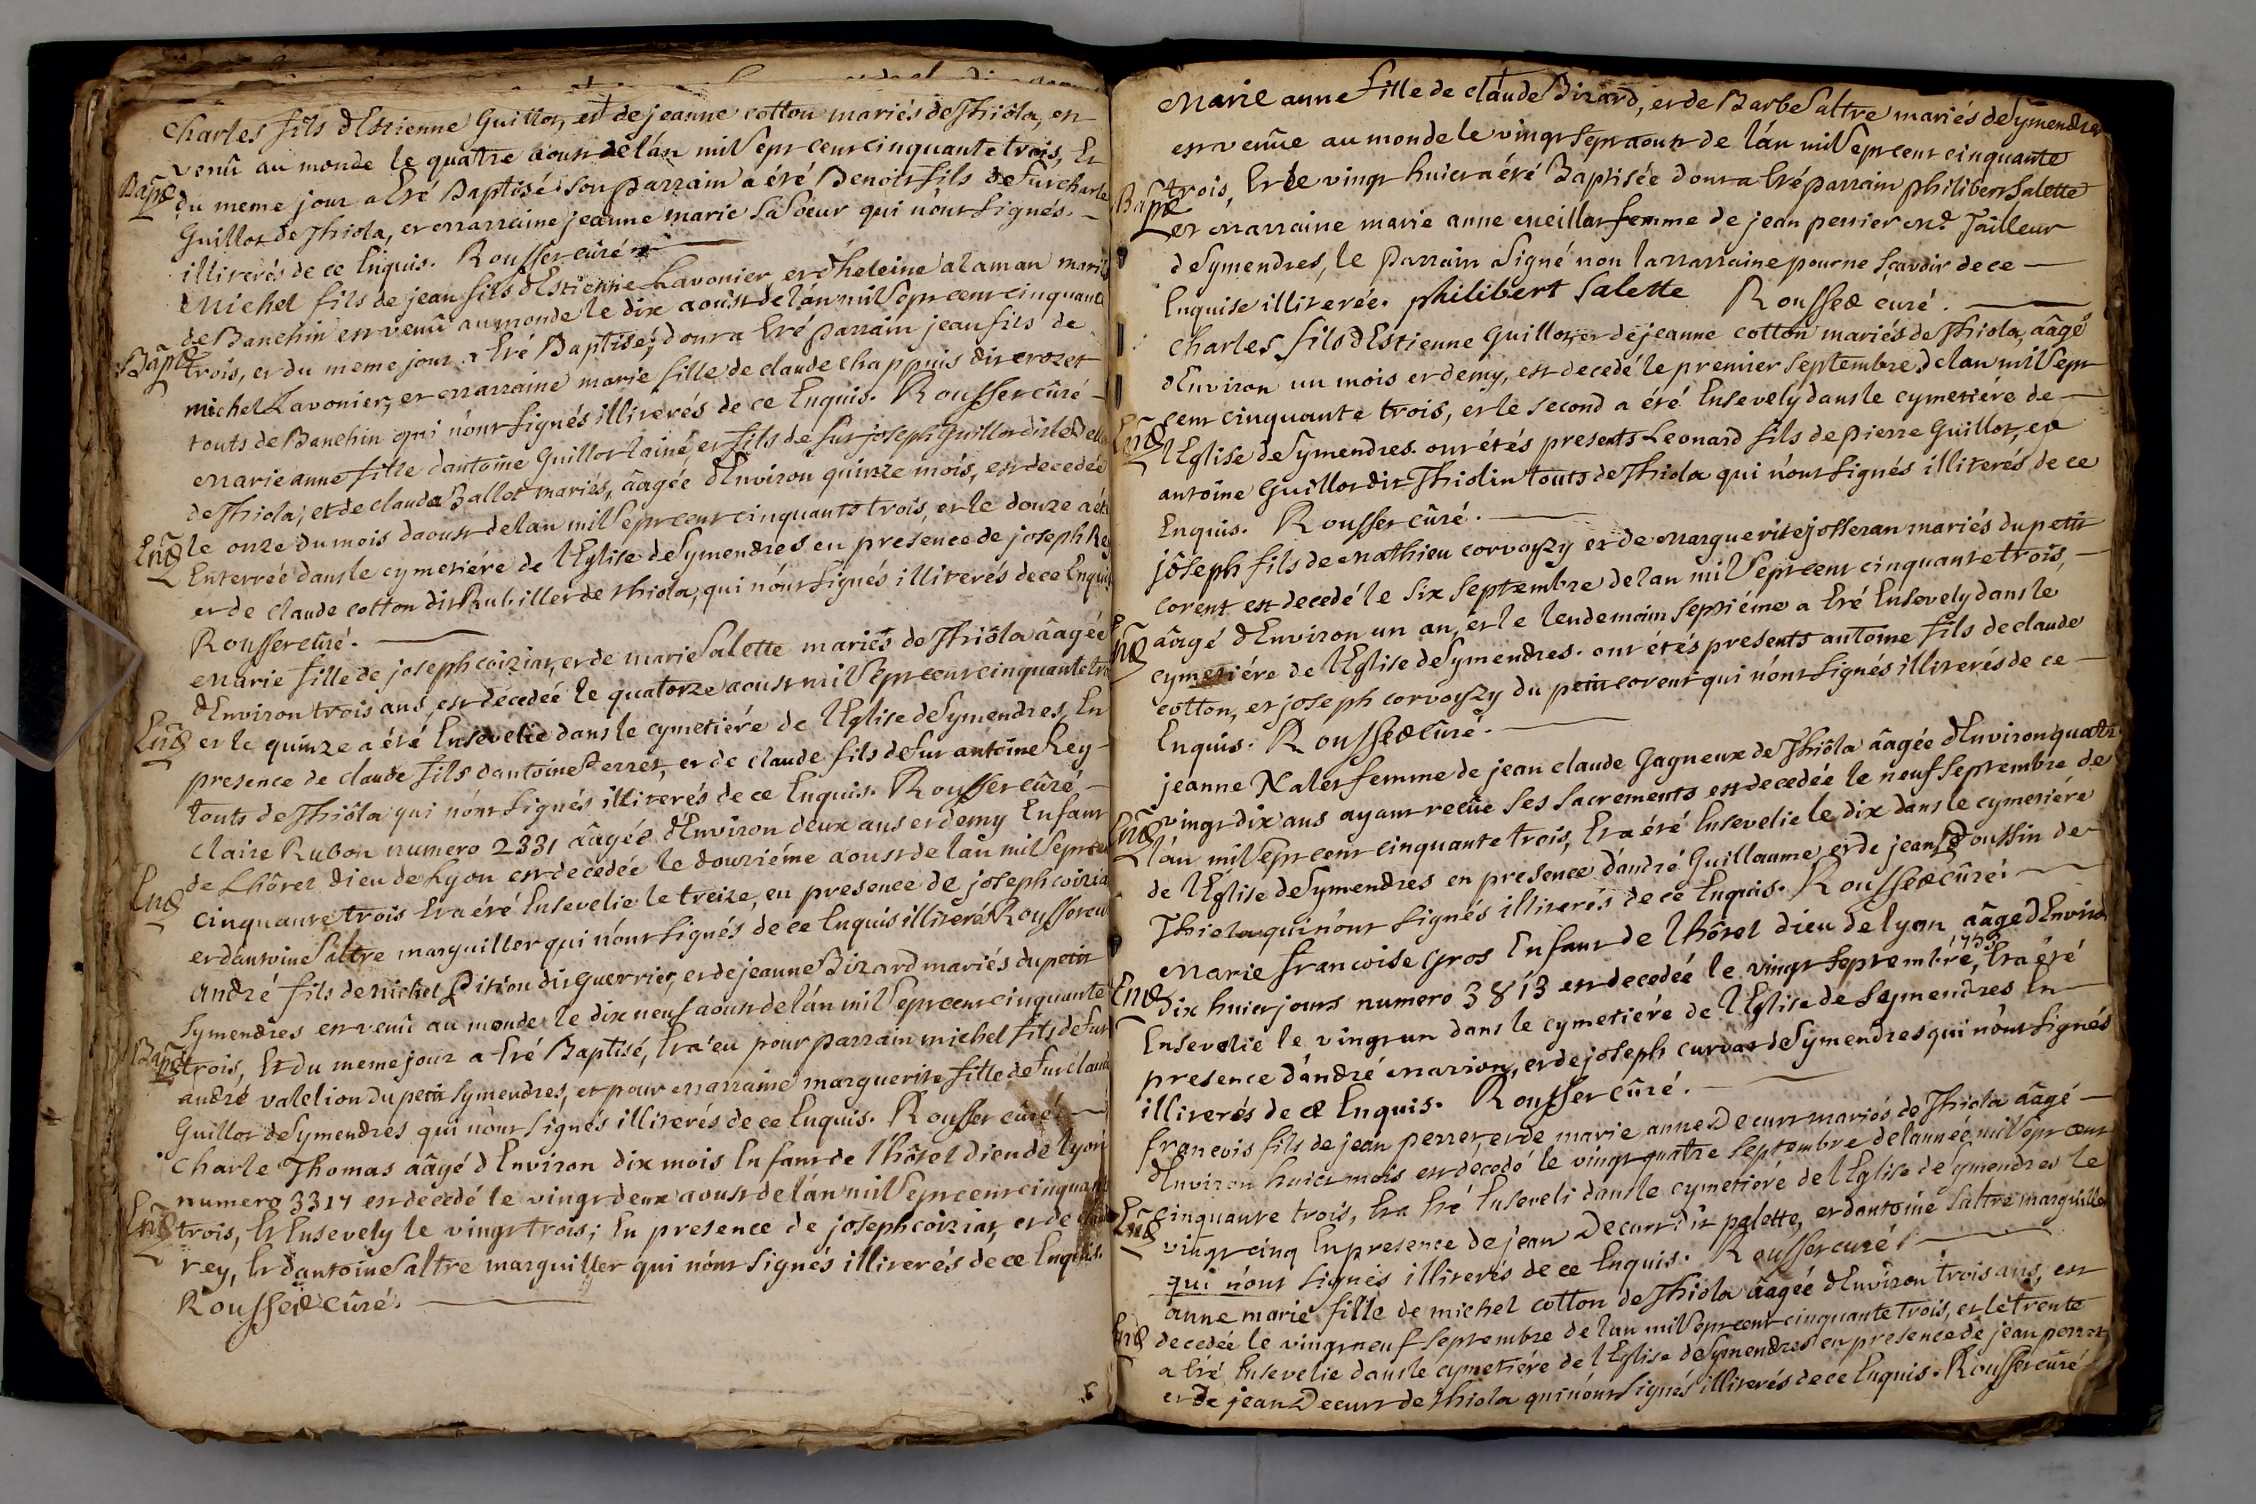 charles fils dEstienne Guillot, et de jeanne cotton mariés de Thiola, est
venû au monde le quatre aoust de lán mil sept cent cinquante trois, Et
Bapt. du meme jour a Eté Baptisé: son parrain a été Benoit fils de fut charle
Guillot de Thiola, et marraine jeanne marie sa soeur qui nónt signés.
illiterés de ce Enquis. Rousset cûré
Michel fils de jean fils dEstienne Lavonier et dheleine alaman mariés
de Banchin est venû au monde le dix aoust de lán mil sept cent cinquante
Bapt. trois, et du meme jour a Eté Baptisé; dont a Eté parrain jean fils de
michel Lavonier, et marraine marie fille de claude chappuis dit crozet
touts de Banchin qui nónt signés illiterés de ce Enquis. Rousset cûré
marie anne fille dantoine Guillot lainé et fils de fut joseph Guillot dit le
de Thiola, et de claude Ballot mariés, âagée dEnviron quinze mois, est decedée
Ent. le onze du mois daoust de lan mil sept cent cinquante trois, et le douze a été
Enterrée dans le cymetiére de lEglise de Symendres en présence de joseph Rey
et de claude cotton dit Rubillet de thiola, qui nónt signés illiterés de ce Enquis
Rousset cûré.
marie fille de joseph coiziat, et de marie Salette mariés de Thiôla âagée
dEnviron trois ans, est decedée le quatorze aoust mil sept cent cinquante trois
Ent. et le quinze a été Ensevelie dans le cymetiére de lEglise de Symendres, En
presence de claude fils dantoine Perret, et de claude fils de fut antoine Rey
touts de Thiôla qui nónt signés illiterés de ce Enquis. Rousset cûré
claire Rubon numero 2331 âagée dEnviron deux ans et demy Enfant
de Lhôtel dieu de Lyon est decedée le douziéme aoust de lán mil sept cent
Ent. cinquante trois Et a été Ensevelie le treize, en presence de joseph coiziat
et dantoine Saltre marguiller qui nónt signés de ce Enquis illiterés Rousset curé
andré fils de michel Pition dit Guerrier, et de jeanne Bizard mariés du petit
Symendres est venû au monde le dix neuf aoust de lán mil sept cent cinquante
Bapt. trois, Et du meme jour a Eté Baptisé, Et a eu pour parrain michel fils de fut
andré valelion du petit Symendres, et pour marraine marguerite fille de fut claude
Guillot de Symendres qui nónt signés illiterés de ce Enquis. Rousset cûré
Charle Thomas âagé dEnviron dix mois Enfant de lhôtel dieu de lyon
numero 3317 est decedé le vingt deux aoust de lán mil sept cent cinquante
Ent. trois, Et Ensevely le vingt trois; En presence de joseph coiziat, et de claude
rey, Et dantoine Saltre marguiller qui nónt signés illiterés de ce Enquis.
Rousset cûré.
Marie anne fille de claude Bizard, et de Barbe Saltre mariés de Symendres
est venûe au monde le vingt sept aoust de lán mil sept cent cinquante
Bapt. trois, Et le vingt huict a été Baptisée dont a Eté parrain philibert Salette
et marraine marie anne meillat femme de jean perrier me. Tailleur
de Symendres, le parrain a signé non la marraine pour ne sçavoir de ce
Enquise illiterée. philibert Salette Rousset cûré.
charles fils dEstienne Guillot, et de jeanne cotton mariés de Thiola, âagé
dEnviron un mois et demy, est decedé le premier septembre de lan mil sept
Ent. cent cinquante trois, et le second a été Ensevely dans le cymetiére de
lEglise de Symendres. ont étés presents Leonard fils de pierre Guillot, et
antoine Guillot dit Thiolin touts de Thiola qui nónt signés illiterés de ce
Enquis. Rousset cûré.
jôseph fils de mathieu corvoyzy et de marguerite josseran mariés du petit
corent est decedé le six septembre de lan mil sept cent cinquante trois,
Ent. âagé dEnviron un an, et le lendemain septiéme a Eté Ensevely dans le
cymetiére de lEglise de Symendres. ont étés presents antoine fils de claude
cotton, et joseph corvoyzy du petit corent qui nónt signés illiterés de ce
Enquis. Rousset cûré.
jeanne Nalet femme de jean claude Gagneux de Thiôla âagée dEnviron quatre
vingt dix ans ayant reçûe ses sacrements est decedée le neuf septembre de
Ent. lán mil sept cent cinquante trois, Et a été Ensevelie le dix dans le cymetiére
de lEglise de Symendres en presence dándré Guillaume, et de jean Poussin de
Thiola qui nónt signés illiterés de ce Enquis. Rousset cûré.
marie francoise Gros Enfant de lhôtel dieu de lyon âage dEnviron
Ent. dix huict jours numero 3813 est decedée le vingt septembre, 1753 Et a été
Ensevelie le vingt un dans le cymetiére de lEglise de Symendres En
presence dándré marion, et de joseph curvat de Symendres qui nónt signés
illiterés de ce Enquis. Rousset cûré.
francois fils de jean perret, et de marie anne Decurt mariés de Thiola âagé
dEnviron huict mois est decedé le vingt quatre septembre de lannée mil sept cent
Ent. cinquante trois, Et a Eté Enseveli dans le cymetiére de lEglise de Symendres le
vingt cinq En presence de jean Decurt dit palette, et dantoine Saltre marguiller
qui nónt signés illiterés de ce Enquis. Rousset curé
anne marie fille de michel cotton de Thiola âagée dEnviron trois ans, est
Ent. decedée le vingt neuf septembre de lan mil sept cent cinquante trois, et le trente
a Eté Ensevelie dans le cymetiére de lEglise de Symendres en presence de jean perret
et de jean Decurt de thiola qui nónt signés illiterés de ce Enquis. Rousset cûré